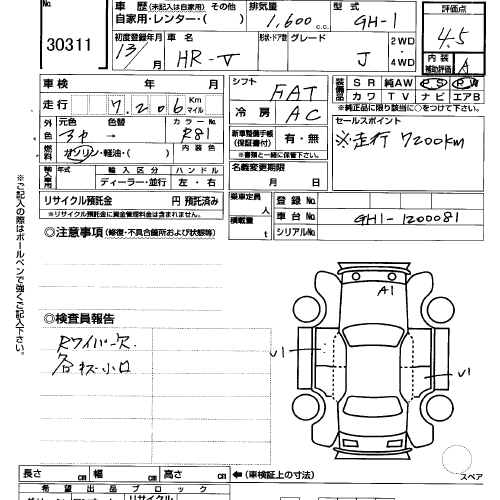 車 歴 (未記入は自家用) その他
自家用・レンター・( )
排気量
1,600 c.c.
型 式
GH-1
評価点
4.5
内 装
補助評価
A
30311
初度登録年月
13/ 月
車 名
HR-V
形状・ドア数
グレード
J
2WD
4WD
車 検 年 月
走 行 7.2 0 6 Km
マイル
外色
元色 色替 カラーNo.
ヌキ → R81
燃料
ガソリン・軽油・( )
内 装 色
輸入車用
年式 輸 入 区 分 ハンドル
ディーラー・並行 左・右
リサイクル預託金 円 預託済み
※リサイクル預託金に資金管理料金は含まれません。
シフト
FAT
冷 房
AC
新車整備手帳
(保証書付)
有・無
※書類と一緒に保管して下さい。
名義変更期限
月 日
装備品
SR 純AW PS PW
カワ TV ナビ エアB
※純正品に限り該当に○をつけて下さい。
セールスポイント
※走行 7200km
乗車定員
人
積載量
t
登 録 No.
車 台 No. GH1-1200081
シリアルNo.
◎注意事項 (修復・不具合個所および状態等)
◎検査員報告
Rワイパー欠
各キズ小口
A1
V1
V1
スペア
※ご記入の際はボールペンで強くご記入下さい。
長さ cm 幅 cm 高さ cm ←(車検証上の寸法)
希 望 出 品 ブ ロ ッ ク
リサイクル